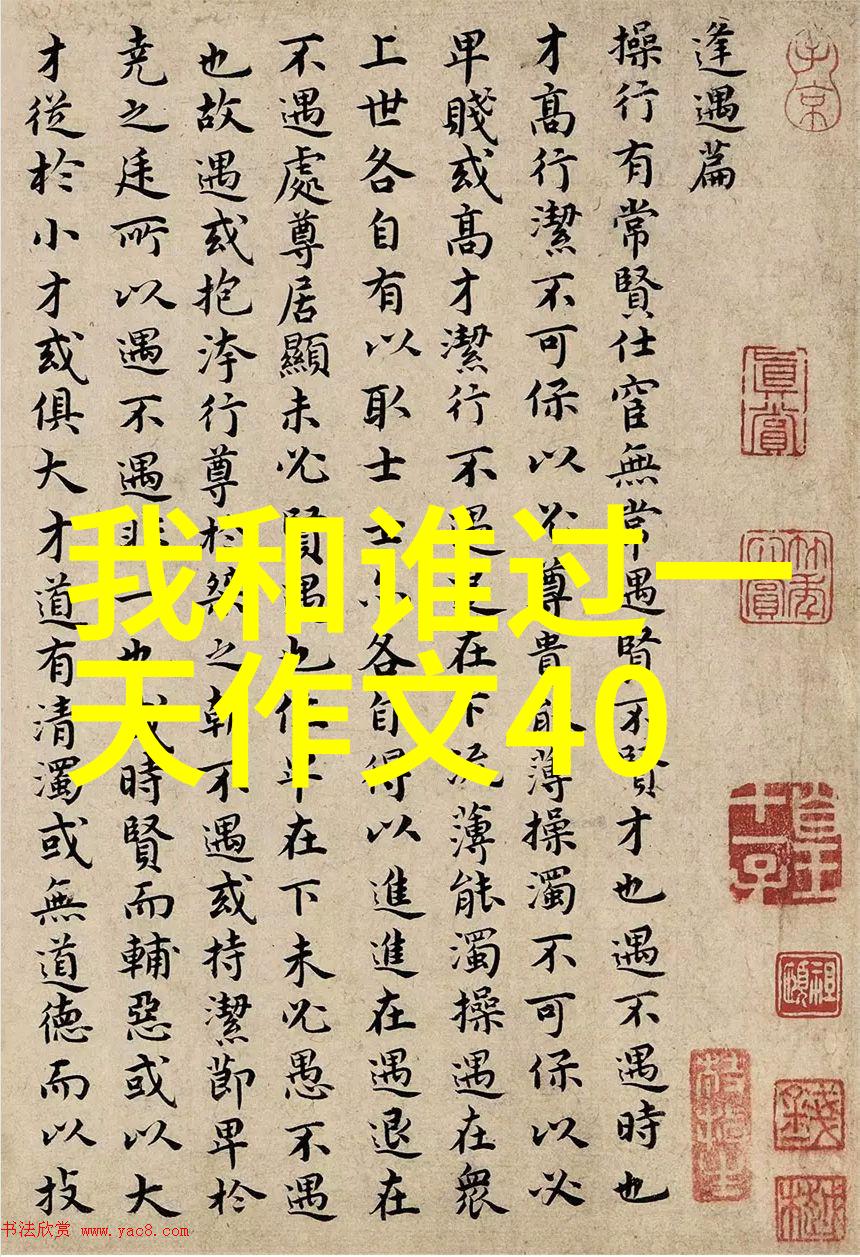 逢遇篇
操行有常賢仕宦無常遇賢不賢才也遇不遇時也
才高行潔不可保以必尊貴能薄操濁不可保以必
卑賤或高才潔行不遇退在下流薄能濁操遇在衆
上世各自有以取士士亦各自得以進進在遇退在
不遇處尊居顯未必賢遇也位卑在下未必愚不遇
也故遇或抱洿行尊於桀之朝不遇或持潔節卑於
堯之廷所以遇不遇非一也或時賢而輔惡或以大
才從於小才或俱大才道有清濁或無道德而以技
我和谁过一
天作文40
子京
真賞
书法欣赏 www.yac8.com